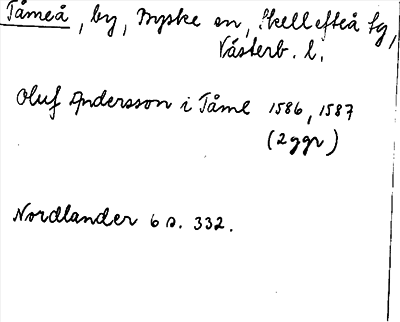 Tåmeå, by, Byske sn, Skellefteå tg,
Västerb. l.
Oluf Andersson i Tåme 1586, 1587
(2 ggr)
Nordlander 6 s. 332.